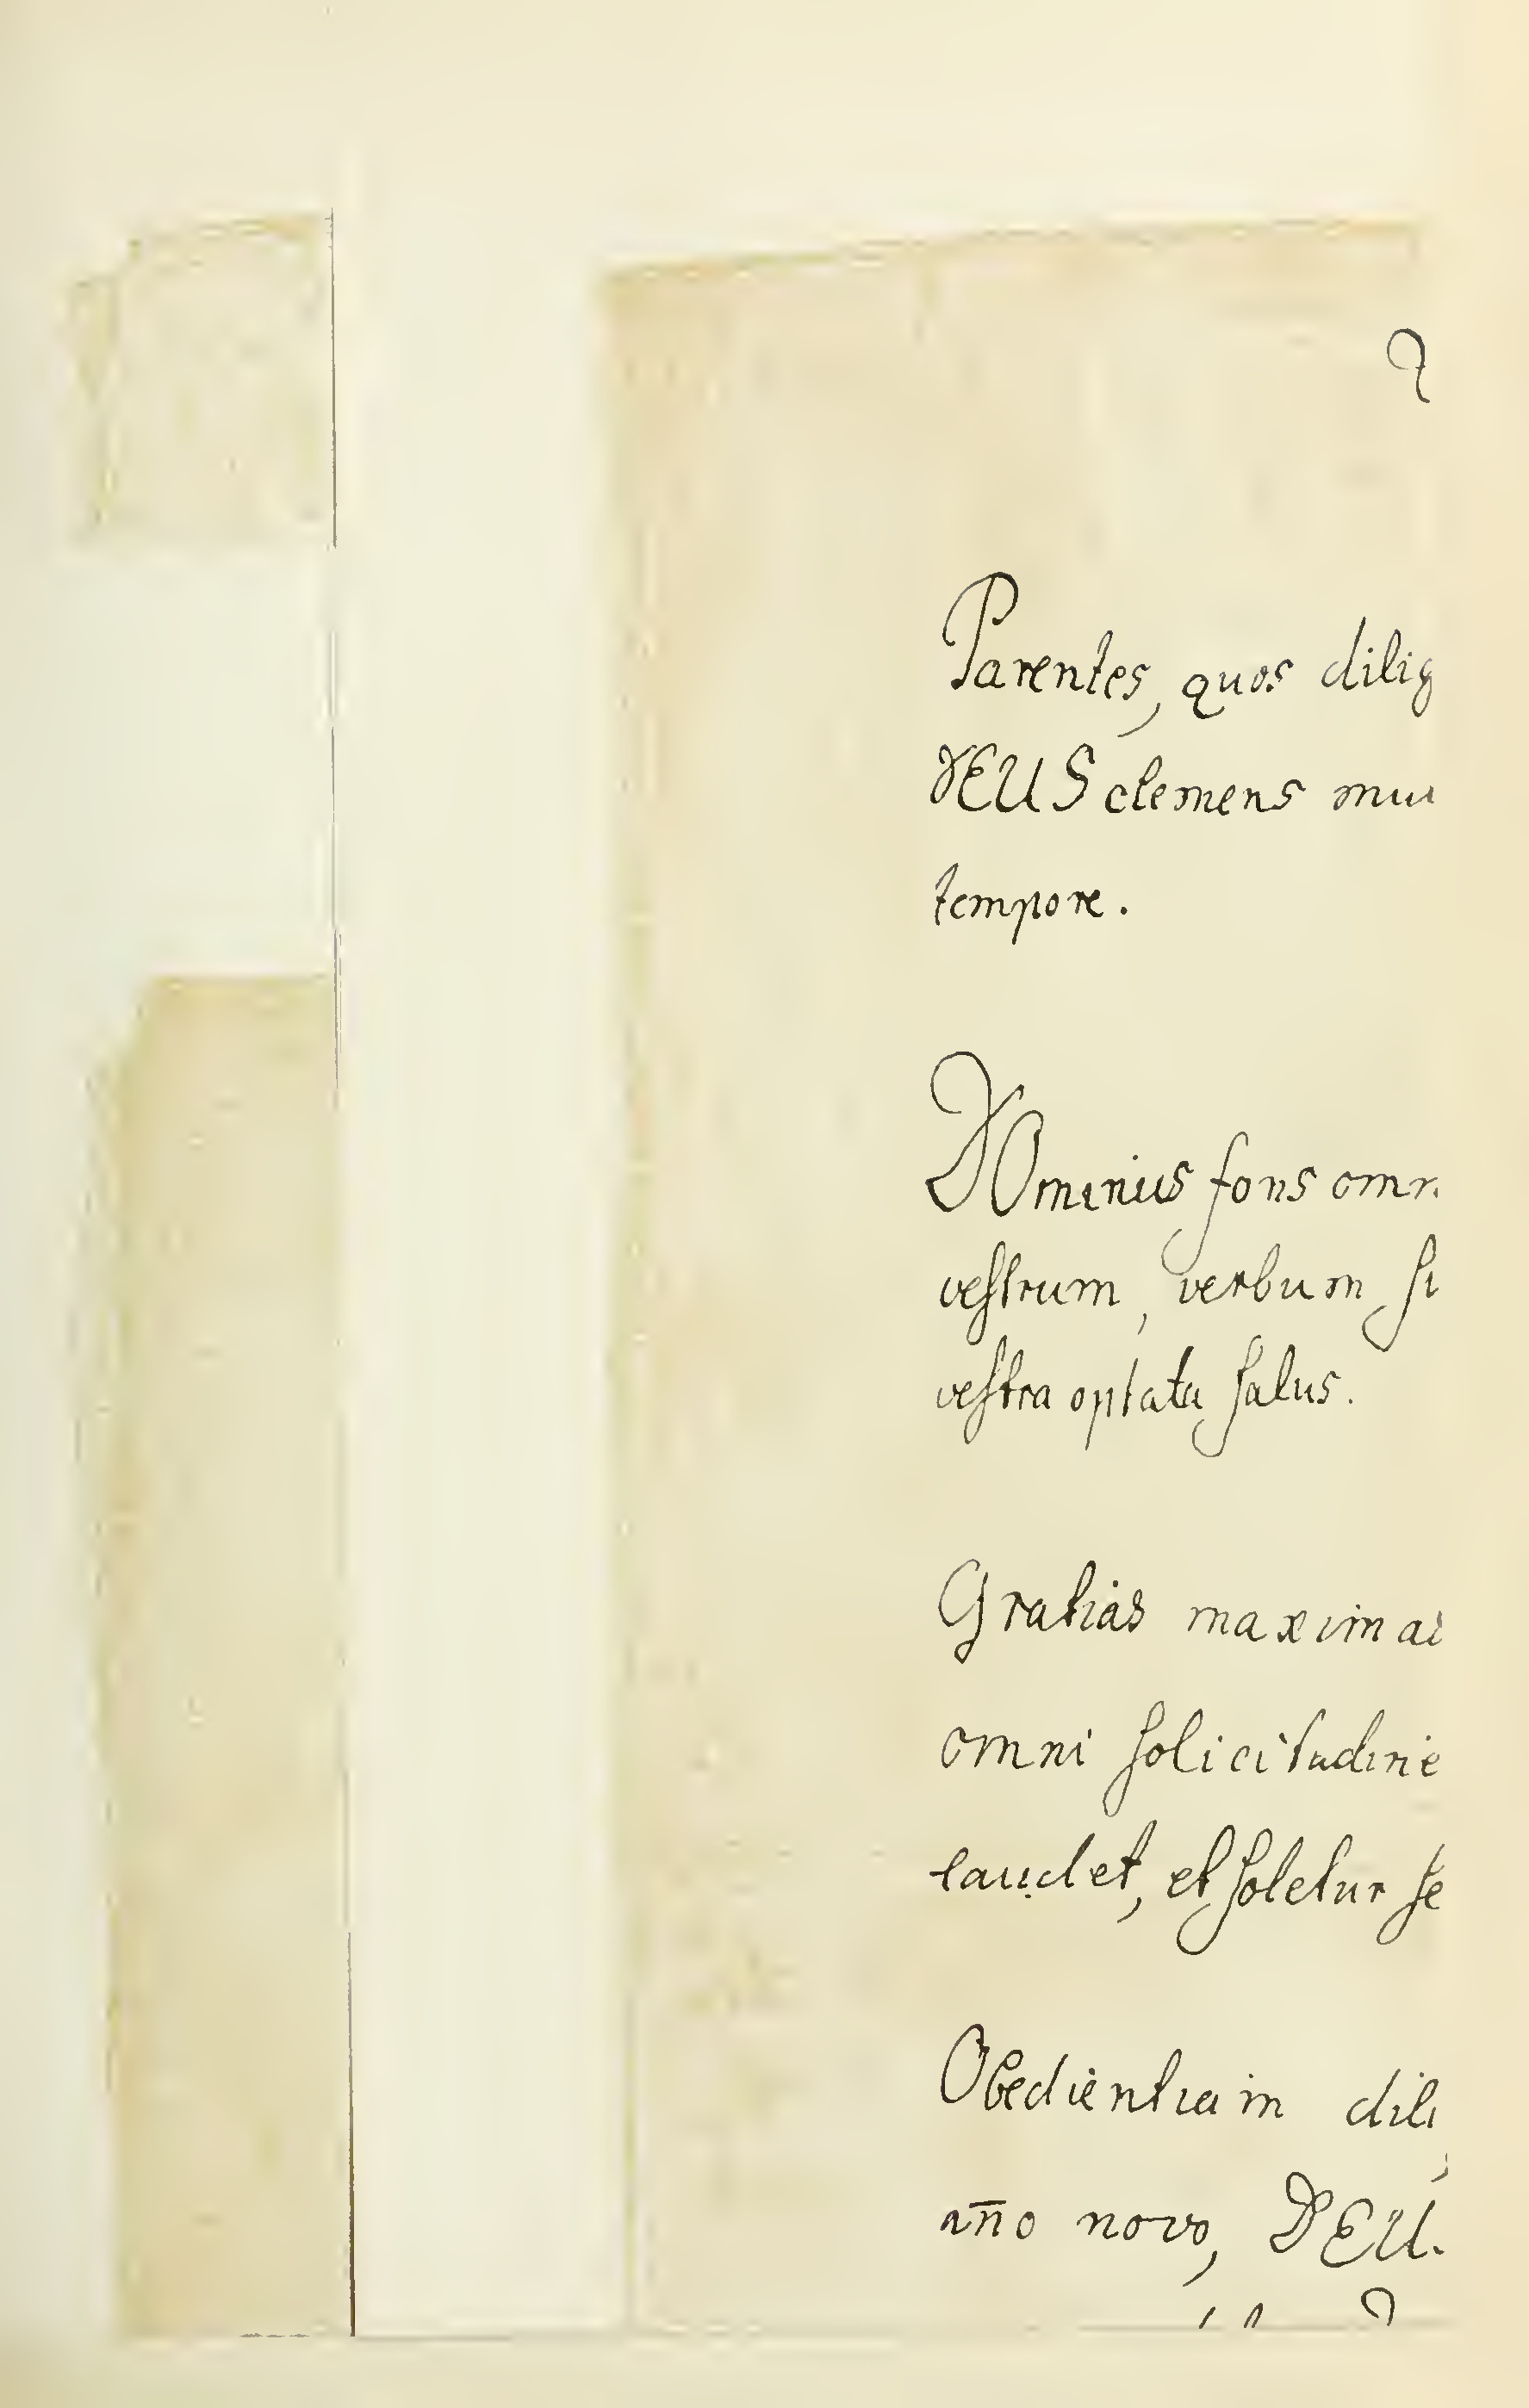 Parentes, quos dilig
DEUS clemens mu
tempore.
DOminus fons omn
veſtrum, verbum ſi
veſtra optata ſalus.
Gratias maximas
omni ſolicitudine
laudet, et ſoletur ſe
Obedientiam dili
año novo, DEU